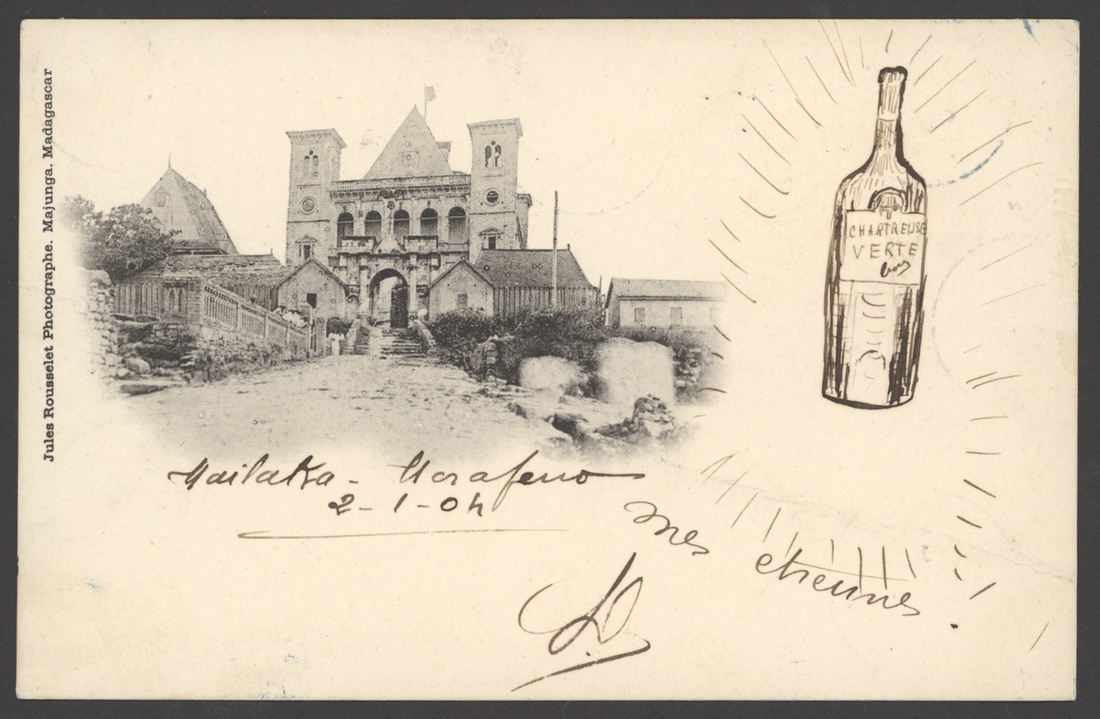 Jules Rousselet Photographe. Majunga. Madagascar
CHARTREUSE
VERTE
Mailaka - Morafeno
2-1-04
mes étrennes